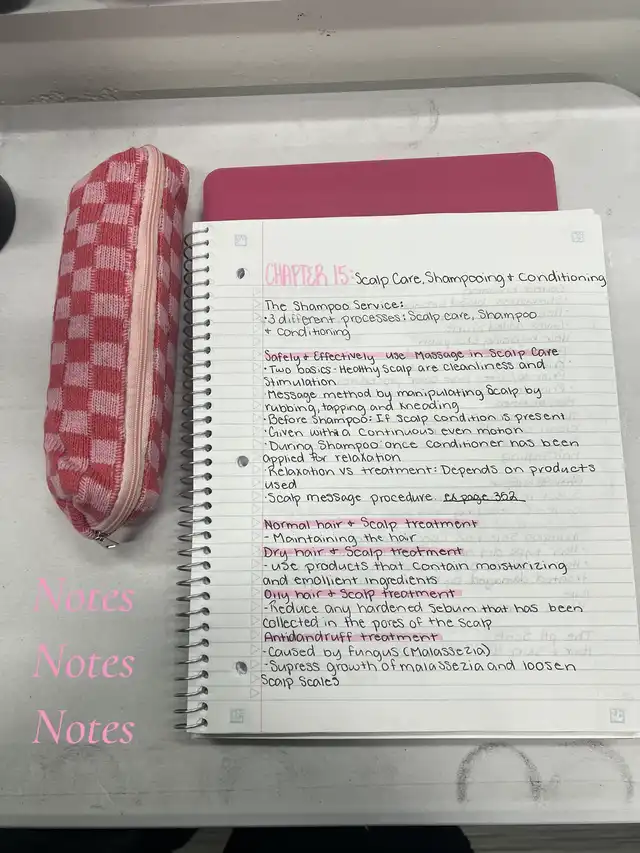 CHAPTER 15: Scalp Care, Shampooing + Conditioning
The Shampoo Service:
·3 different processes: Scalp care, Shampoo
+ conditioning
Safely + Effectively use Massage in Scalp Care
·Two basics: Healthy Scalp are cleanliness and
Stimulation
·Message method by manipulating Scalp by
rubbing, tapping and kneading
·Before Shampoo: If Scalp condition is present
·Given with a Continuous even motion
·During Shampoo: once conditioner has been
applied for relaxation
·Relaxation vs treatment: Depends on products
used
·Scalp message procedure page 352
Normal hair + Scalp treatment
- Maintaining the hair
Dry hair + Scalp treatment
- use products that contain moisturizing
and emollient ingredients
Oily hair + Scalp treatment
-Reduce any hardened Sebum that has been
collected in the pores of the scalp
Antidandruff treatment
-Caused by fungus (Malassezia)
-Supress growth of malassezia and loosen
Scalp Scales
Notes
Notes
Notes